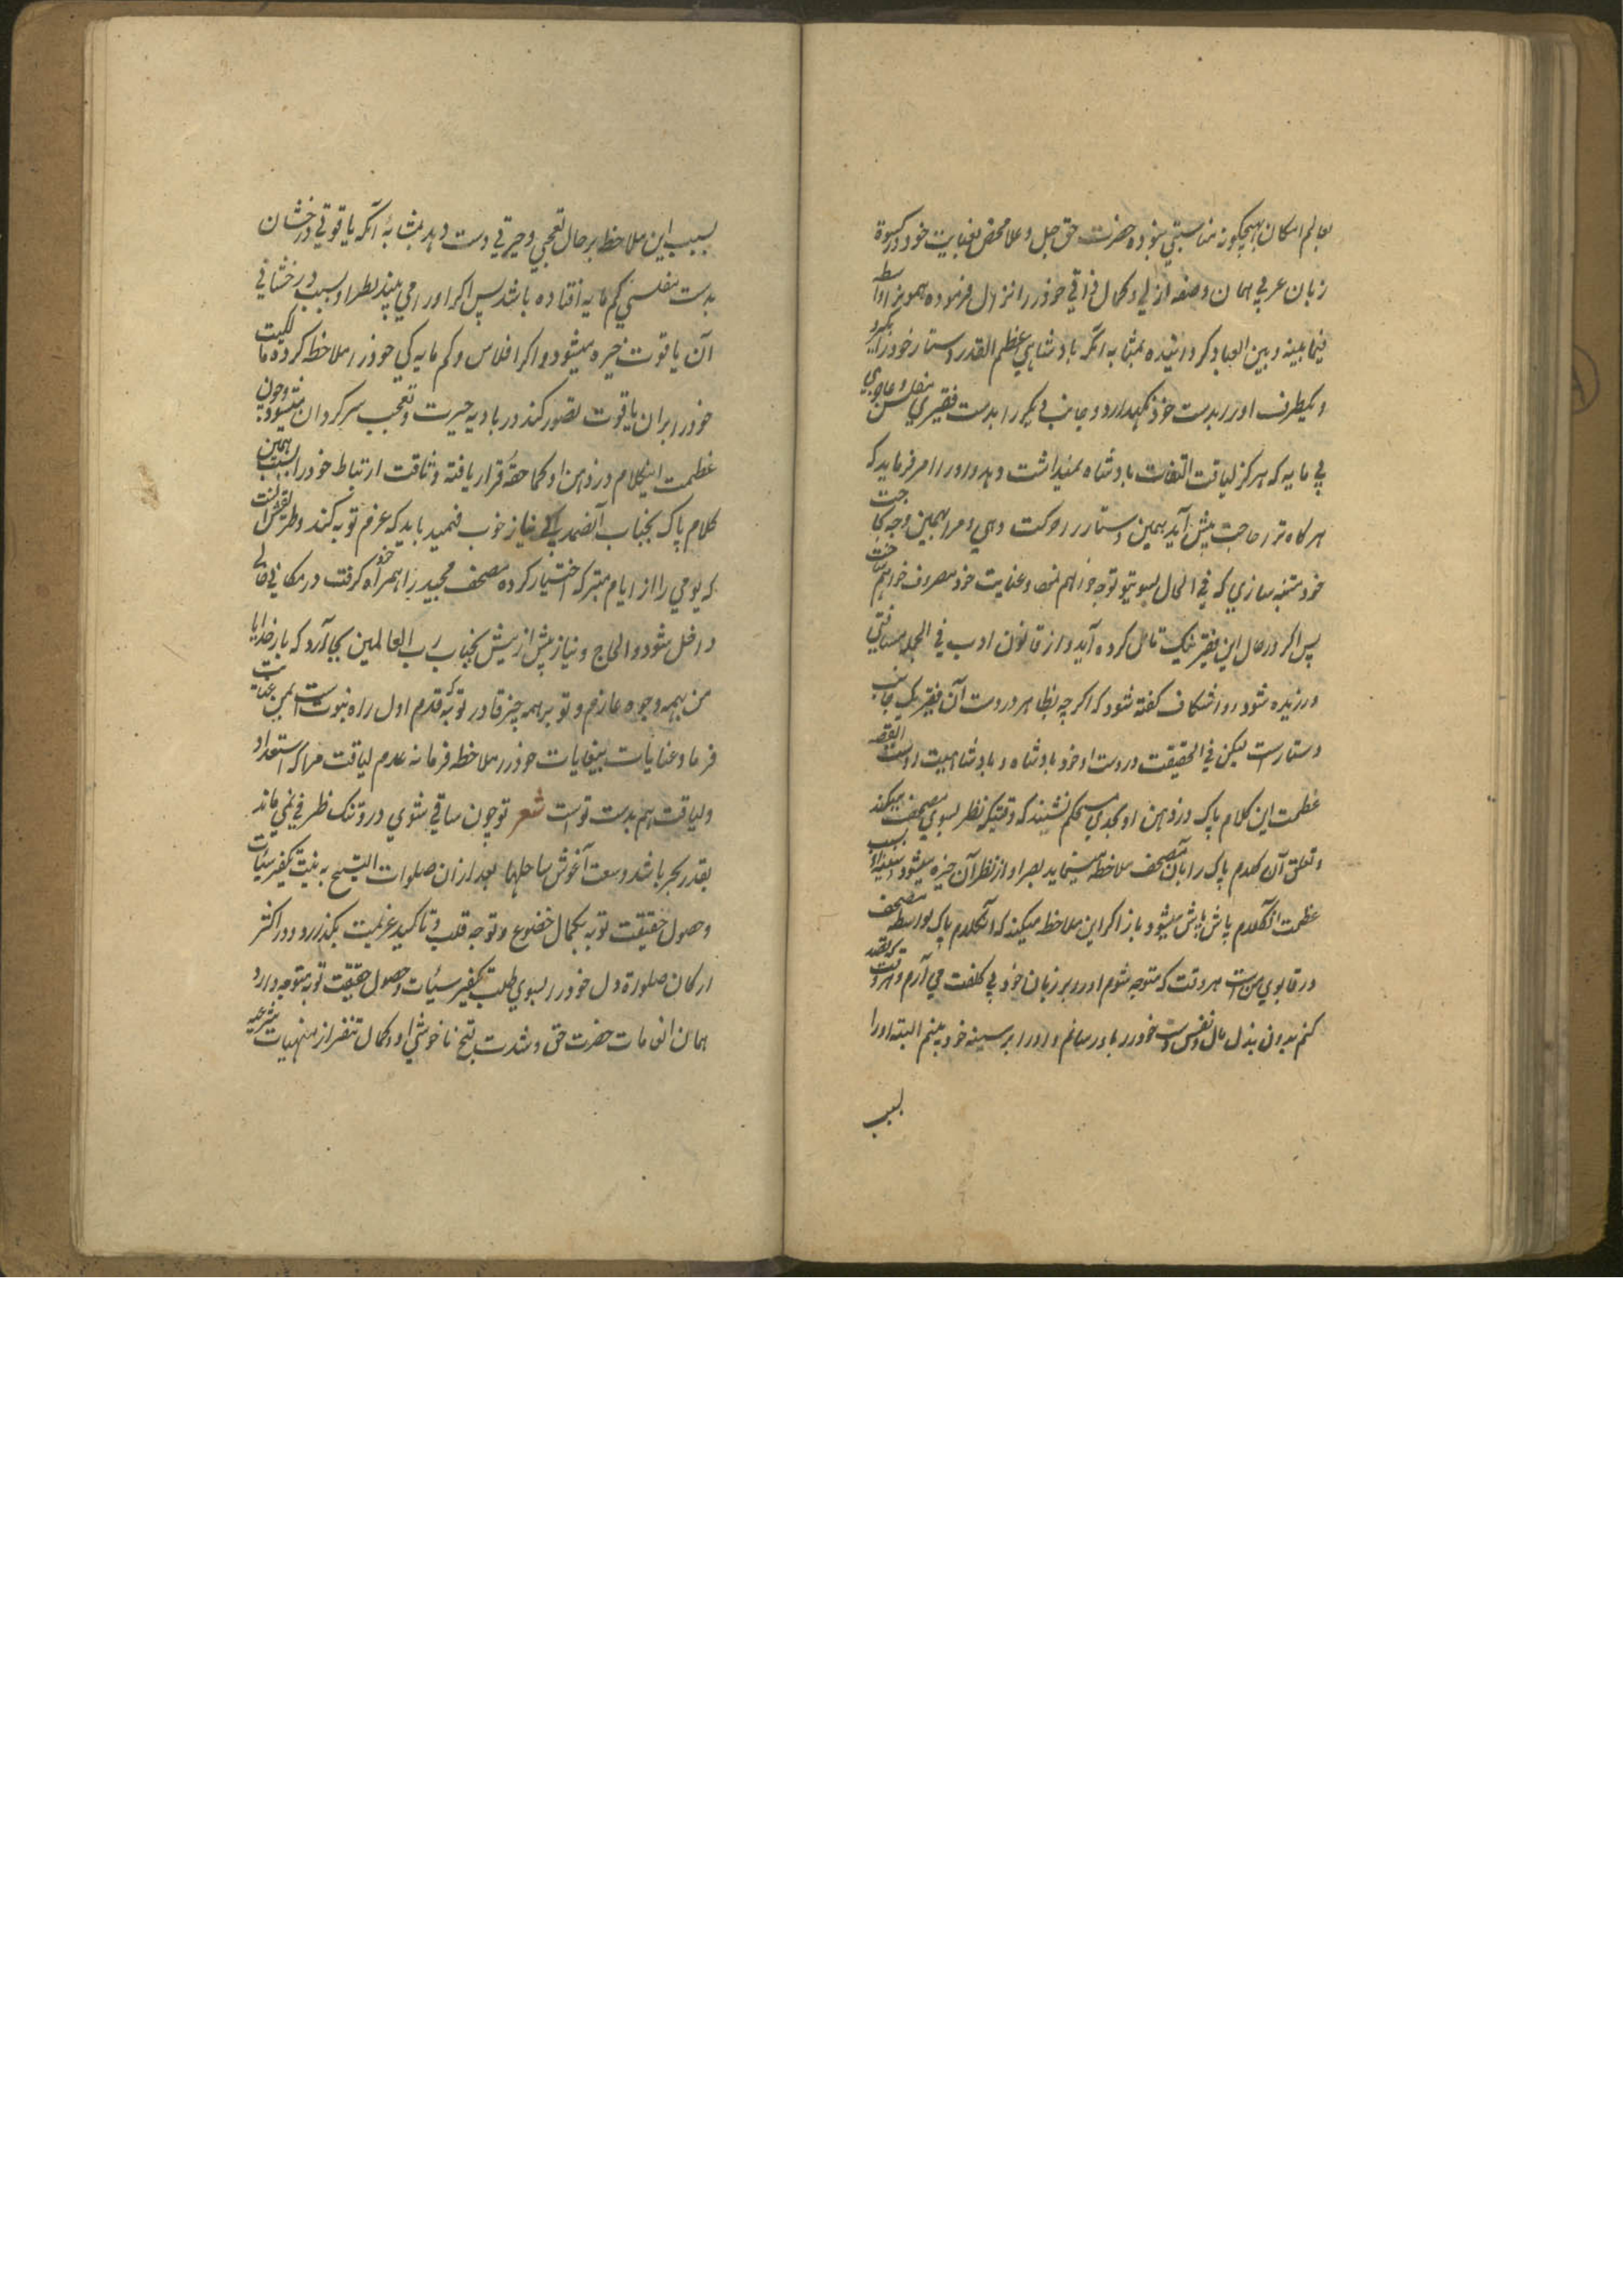 بعالم امکان هیچگونه مناسبتی نبوده حضرت حق جل وعلا محض بعنایت خود در کسوة
زبان عربی همان وصفه ازلی وکمال ذاتی خود را نزال فرموده همو را واسطه
فیما بینه وبین العباد گردانیده بمثابه آنکه بادشاهی عظیم القدر دستار خود را بگیرد
ویکطرف او را بدست خود نگهدارد و جانب دیگر را بدست فقیری مفلس وعاجزی
بی مایه که هرگز لیاقت التفات بادشاه نمیداشت دهد و او را امر فرماید که
هرگاه ترا حاجت پیش آید همین دستار را حرکت دهی و مرا بهمین وجه بحاجت
خود متنبه سازی که فی الحال بسوی تو توجه خواهم نمود وعنایت خود مصروف خواهم ساخت
پس اگر در حال این فقیر نیک تامل کرده آید و از قانون ادب فی الجمله مسافتی
ورزیده شود و واشگاف گفته شود که اگرچه بظاهر در دست آن فقیر یک جانب
دستار است لیکن فی الحقیقت در دست او خود بادشاه و بادشاهیت است القصه
عظمت این کلام پاک در ذهن او بحدی مستحکم نشیند که وقتیکه نظر بسوی مصحف میکند
وتعلق آن کلام پاک را بآن مصحف ملاحظه مینماید بصر او از نظر آن خیره میشود وسینه او بسبب
عظمت آنکلام پاش پاش میشود باز اگر این ملاحظه میکند که آنکلام پاک بواسطه مصحف
در قابوی من است هر وقت که متوجه شوم او را بر زبان خود بی کلفت می آرم و هر وقت که قصد
کنم بدون بذل مال ونفس دست خود را باو رسانم و او را بر سینه خود بینم البته او را
بسبب
بسبب این ملاحظه بر حال تعجبی وحیرتی دست دهد بمثابهٔ آنکه یاقوتی درخشان
بدست مفلسی کم مایه افتاده باشد پس اگر او را می بیند بصر او بسبب درخشانی
آن یاقوت خیره میشود و اگر افلاس وکم مایه گی خود را ملاحظه کرده مالکیت
خود را بران یاقوت تصور کند در بادیه حیرت وتعجب سرگردان میشود وچون
عظمت اینکلام در ذهن او کما حقه قرار یافته وثاقت ارتباط خود را بسبب همین
کلام پاک بجناب آنصمد بی نیاز خوب فهمید باید که عزم توبه کند وطریقش آنست
که یومی را از ایام متبرکه اختیار کرده مصحف مجید را همراه خود گرفته در مکانی خالی
داخل شود و الحاح ونیاز بیش از بیش بجناب رب العالمین بجا آرد که بار خدایا
من بهمه وجوه عاجزم وتو بر همه چیز قادر توبه که قدم اول راه نبوت است بمن عنایت
فرما وعنایات بیغایات خود را ملاحظه فرما نه عدم لیاقت مرا که استعداد
ولیاقت هم بدست توست شعر تو چون ساقی شوی درد تنک ظرفی نمی ماند
بقدر بحر باشد وسعت آغوش ساحلها بعد ازان صلوات التسبیح به نیت تکفیر سیئات
وحصول حقیقت توبه بکمال خضوع وتوجه قلب وتاکید عزیمت بگذارد و در اکثر
ارکان صلوة دل خود را بسوی طلب تکفیر سیئات وحصول حقیقت توبه متوجه دارد
همان انعامات حضرت حق وشدت قبح ناخوشی او وکمال تنفر از منهیات شرعیه